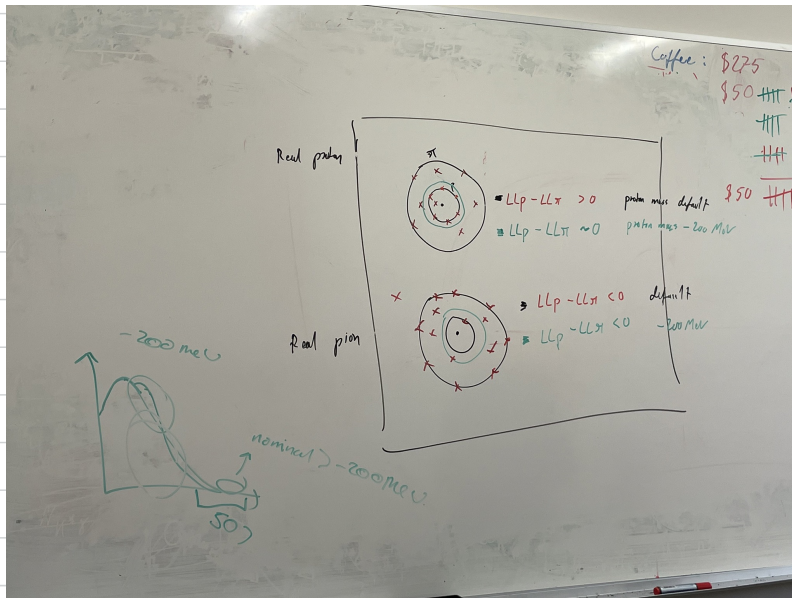 Coffee: $275
$50
$50
Real proton
π
LLp - LLπ > 0 proton mass default
LLp - LLπ ~ 0 proton mass - 200 MeV
Real pion
LLp - LLπ < 0 default
LLp - LLπ < 0 - 200 MeV
- 200 MeV
nominal > - 200 MeV
50>